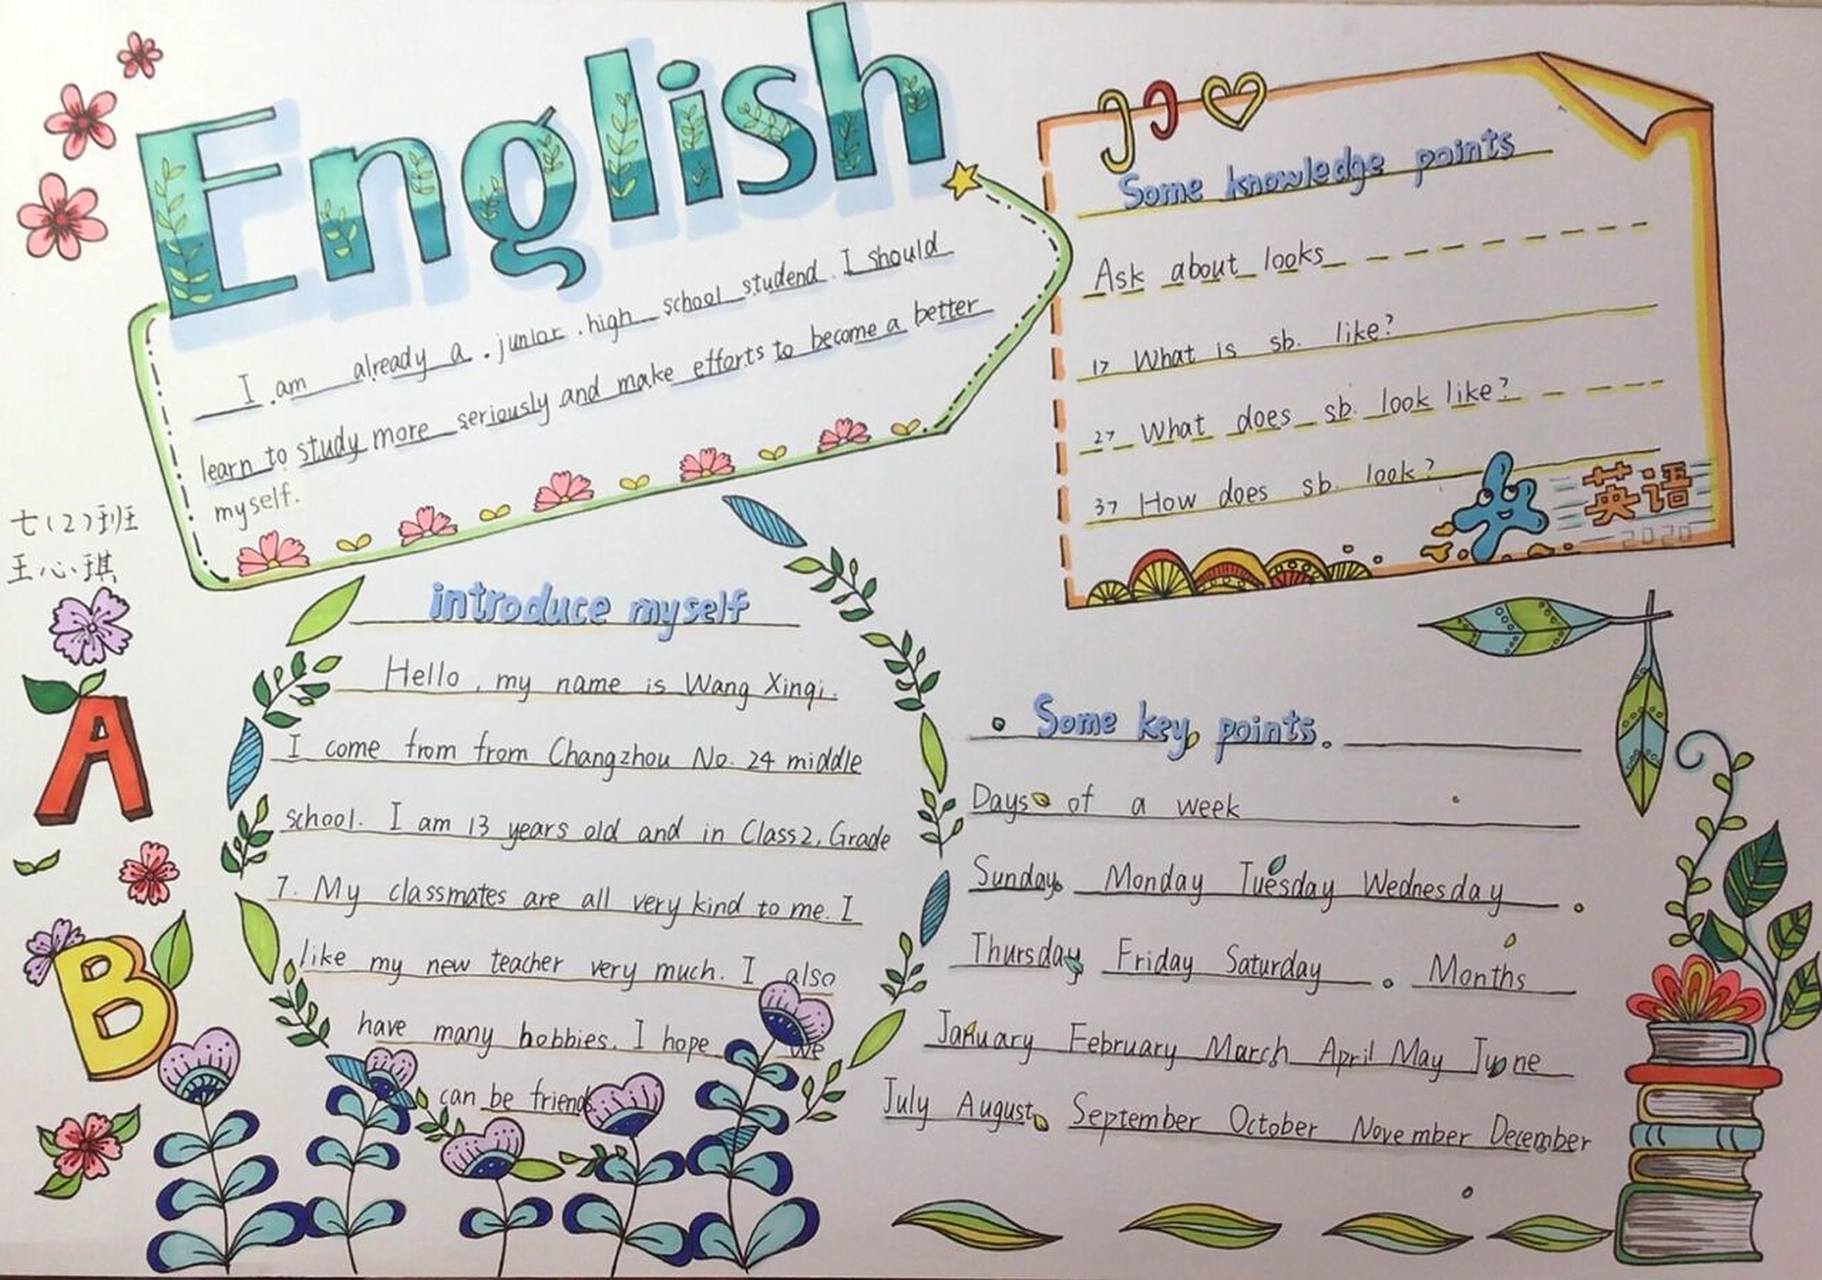 English
I am already a junior high school studend. I should
learn to study more seriously and make efforts to become a better
myself.
Some knowledge points
Ask about looks
1> What is sb. like?
2> What does sb. look like?
3> How does sb. look?
英语
2020
七(2)班
王心琪
A
B
introduce myself
Hello, my name is Wang Xinqi.
I come from from Changzhou No. 24 middle
school. I am 13 years old and in Class2, Grade
7. My classmates are all very kind to me. I
like my new teacher very much. I also
have many hobbies. I hope we
can be friend
Some key points.
Days of a week
Sunday Monday Tuesday Wednesday
Thursday Friday Saturday. Months
January February March April May June
July August September October November December